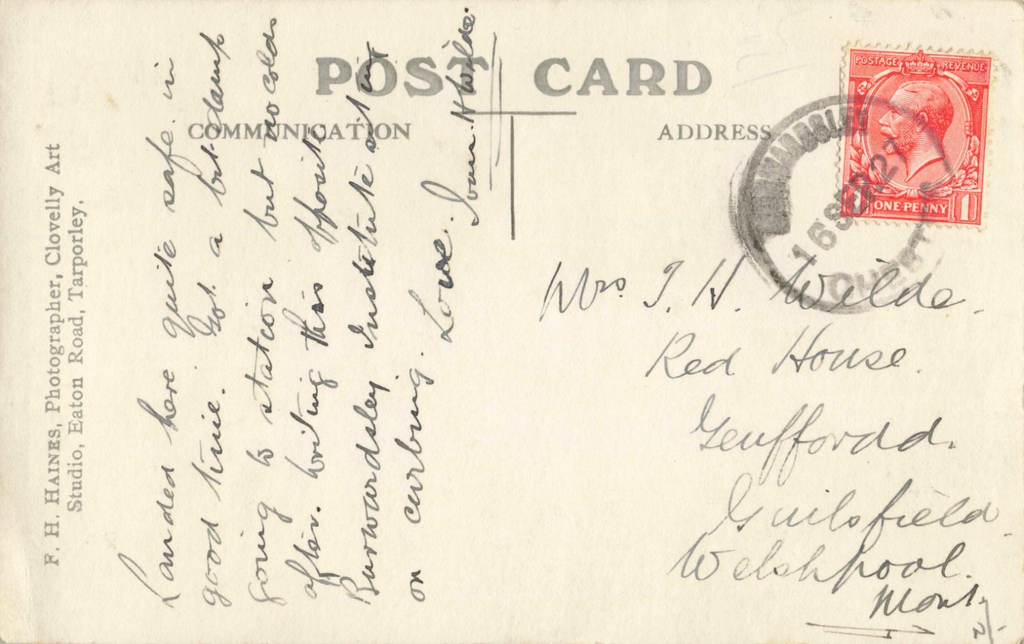 POST CARD
COMMUNICATION
ADDRESS
F. H. HAINES, Photographer, Clovelly Art
Studio, Eaton Road, Tarporley.
Landed here quite safe in
good time. Got a bit damp
going to station but no colds
after. Writing this opposite
Burwardsley Institute sitting
on curbing.
Love.
H Wilde.
POSTAGE REVENUE
ONE PENNY 1
16 SE 27
Mrs J. H. Wilde.
Red House.
Geuffordd.
Guilsfield
Welshpool.
Mont.